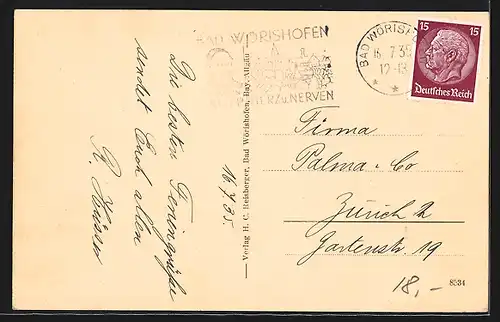 Die besten Feriengrüße
sendet Euch allen
R.
16.7.35.
Verlag H. C. Reisberger, Bad Wörishofen, Bay. Allgäu
BAD WÖRISHOFEN
HERZ u. NERVEN
BAD WÖRISH
16.7.35
12-13
15 15
Deutsches Reich
Firma
Palma & Co
Zürich 2
Gartenstr. 19
18,-
8534